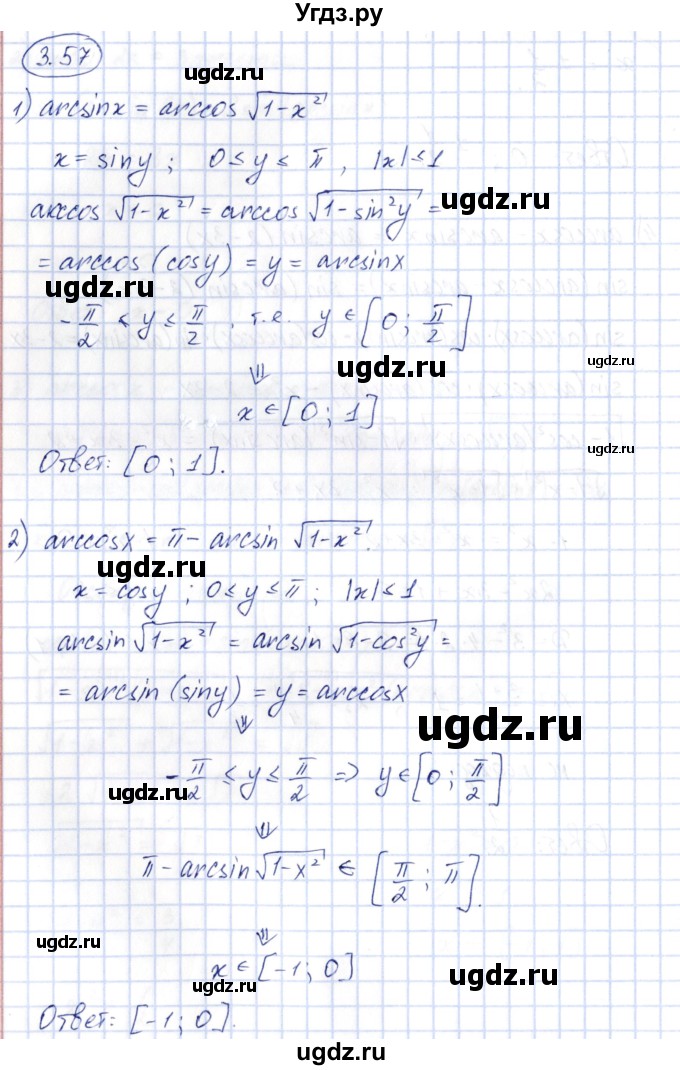 Угдз.ру
3.57
ugdz.ru ugdz.ru
1) arcsinx = arccos √(1-x²)
x = siny ; 0 ≤ y ≤ π , |x| ≤ 1
ugdz.ru
arccos √(1-x²) = arccos √(1-sin²y) =
ugdz.ru
= arccos (cosy) = y = arcsinx
ugdz.ru
-π/2 ≤ y ≤ π/2 , т.е. y ∈ [0 ; π/2]
ugdz.ru ugdz.ru
⇓
x ∈ [0 ; 1]
Ответ: [0 ; 1].
ugdz.ru
2) arccosx = π - arcsin √(1-x²).
ugdz.ru
x = cosy ; 0 ≤ y ≤ π ; |x| ≤ 1
ugdz.ru
arcsin √(1-x²) = arcsin √(1-cos²y) =
= arcsin (siny) = y = arccosx
⇓
ugdz.ru
-π/2 ≤ y ≤ π/2 => y ∈ [0 ; π/2]
ugdz.ru
⇓
π - arcsin √(1-x²) ∈ [π/2 ; π].
ugdz.ru
⇓
x ∈ [-1 ; 0]
ugdz.ru ugdz.ru
Ответ: [-1 ; 0].
ugdz.ru
ugdz.ru